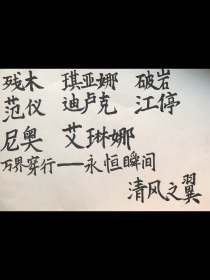 残木 琪亚娜 破岩
范仪 迪卢克 江停
尼奥 艾琳娜
万界穿行——永恒瞬间
清风之翼